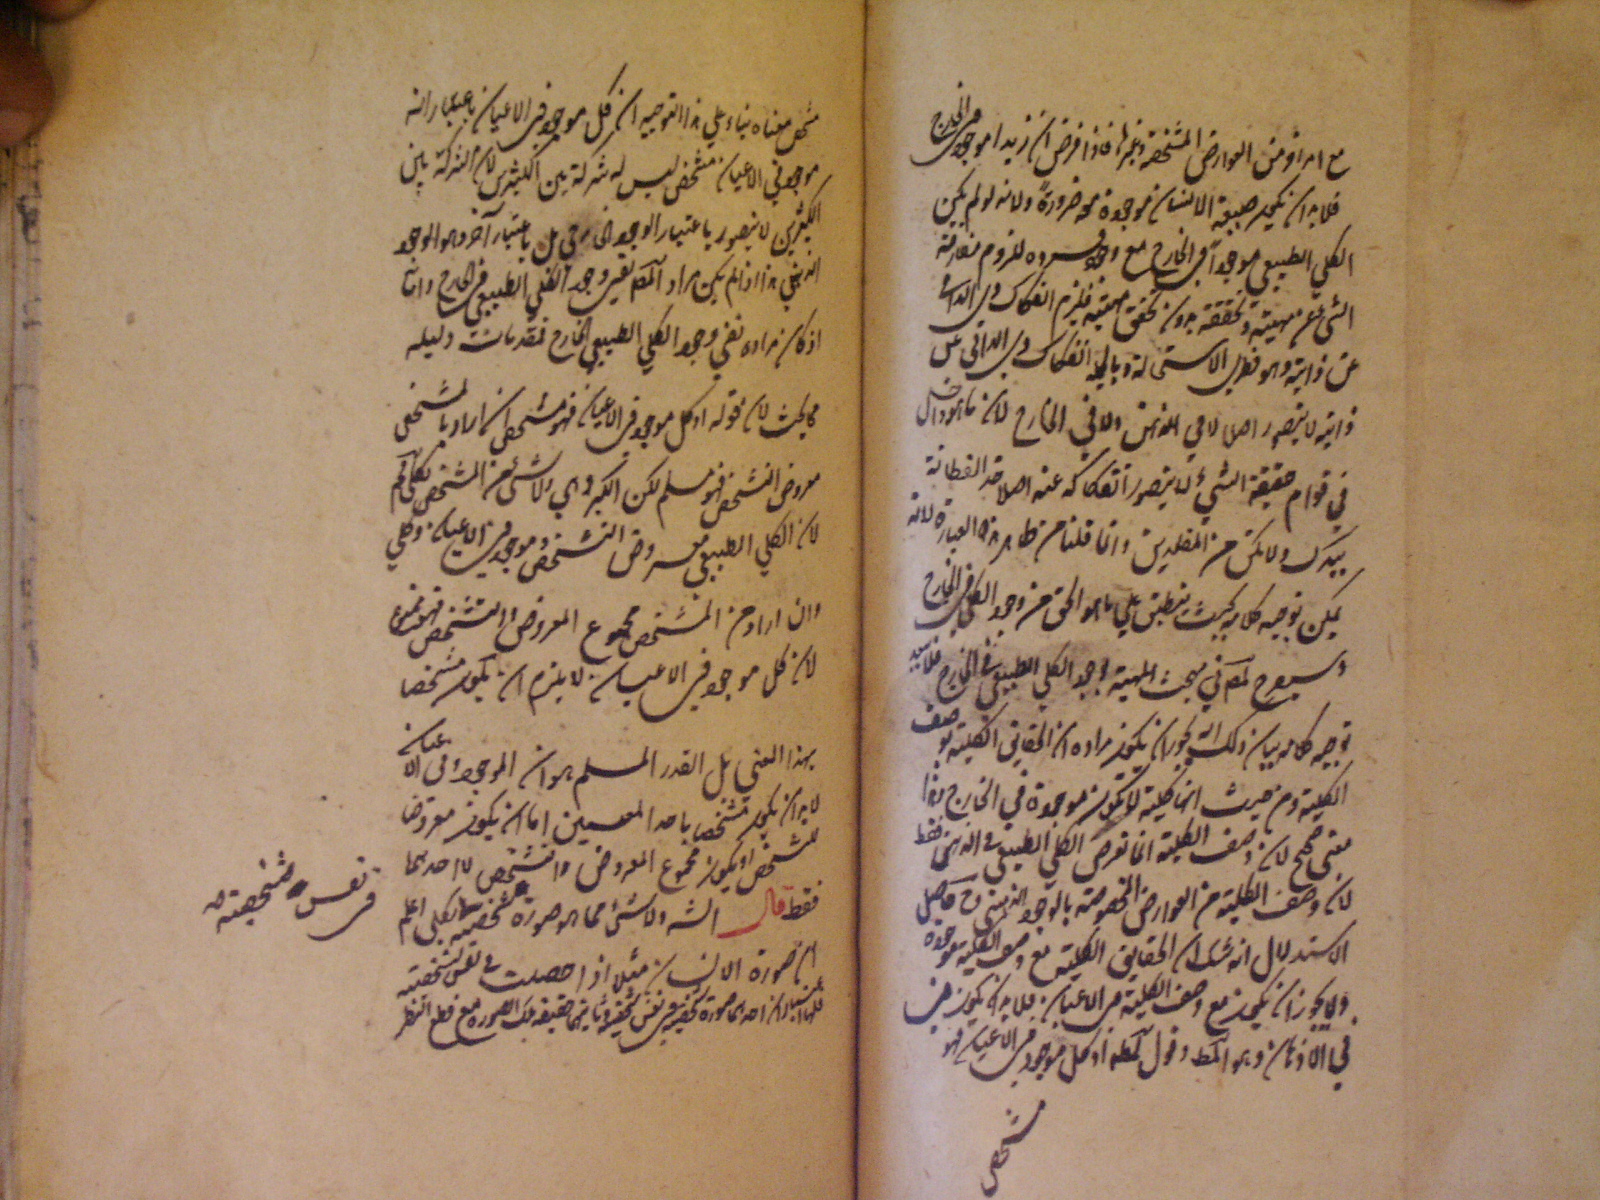 مع امر اخر من العوارض المشخصة وغيرها فاذا فرض ان زيدا موجود فى الخارج
فلا بد ان يكون طبيعة الانسان موجودة معه ضرورة ولانه لو لم يكن
الكلي الطبيعي موجودا في الخارج مع وجود فرده للزوم مفارقة
الشئ عن مهيته وتحققه بدون تحقق مهيته فيلزم انفكاك ذي الذاتى
عن ذاتيته وهو فطري الاستحالة وبالجملة انفكاك ذي الذاتى عن
ذاتيته لا يتصور اصلا لا في الذهن ولا في الخارج لان ما هو داخل
في قوام حقيقة الشيئ لا يتصور انفكاكه عنه اصلا خذ الفطانة
بيدك ولا تكن من المقلدين وانما قلنا من ظاهر هذا العبارة لانه
يمكن توجيه كلامه بحيث ينطبق علي ما هو الحق من وجود الكلي فى الخارج
وسيصرح المصم في مبحث المهية وجود الكلي الطبيعي في الخارج فلا بد
توجيه كلامه بيان ذلك انه يجوز ان يكون مراده ان الحقايق الكلية بوصف
الكلية ومن حيث انها كلية لا تكون موجودة في الخارج وهذا
معنى صحيح لان وصف الكلية انما تعرض الكلي الطبيعي في الذهن فقط
لان وصف الكلية من العوارض المخصوصة بالوجود الذهني وح حاصل
الاستدلال انه لا شك ان الحقايق الكلية مع وصف الكلية موجودة
ولا يجوز ان يكون مع وصف الكلية في الاعيان فلا بد ان يكون
في الاذهان وهو المط وقول المصه اذ كل موجود في الاعيان فهو
مشخص
مشخص معناه بناء علي هذا التوجيه ان كل موجود فى الاعيان باعتبار انه
موجود في الاعيان مشخص ليس له شركة بين الكثيرين لان الشركة بين
الكثيرين لا يتصور باعتبار الوجود الخارجي بل باعتبار آخر وهو الوجود
الذهني هذا اذا لم يكن مراد المصم نفى وجود الكلي الطبيعي في الخارج واما
اذ كان مراده نفي وجود الكلي الطبيعي الخارج فمقدمات دليله
محل بحث لان قوله اذ كل موجود في الاعيان فهو مشخص ان اراد بالمشخص
معروض التشخص فهو مسلم لكن الكبرى وهي ولا شئ من المشخص بكلي لم
لان الكلي الطبيعي معروض التشخص وموجود في الاعيان وكلي
وان اراد من المشخص مجموع المعروض والتشخص فهو ممنوع
لان كل موجود في الاعيان لا يلزم ان يكون مشخصا
بهذا المعني بل القدر المسلم هو ان الموجود فى الاعيان
لا بد ان يكون مشخصا باحد المعنيين اما ان يكون معروضا
للتشخص او يكون مجموع المعروض والتشخص لا احدهما
فقط قال الشه ولا شئ مما هو صورة شخصية بكلي اعلم
ان صورة الانسان مثلا اذا حصلت في نفس شخصية
فلها اعتباران احدهما صورة شخصية في نفس شخصية وثانيهما حقيقة تلك الصورة مع قطع النظر
فى نفس شخصية صه